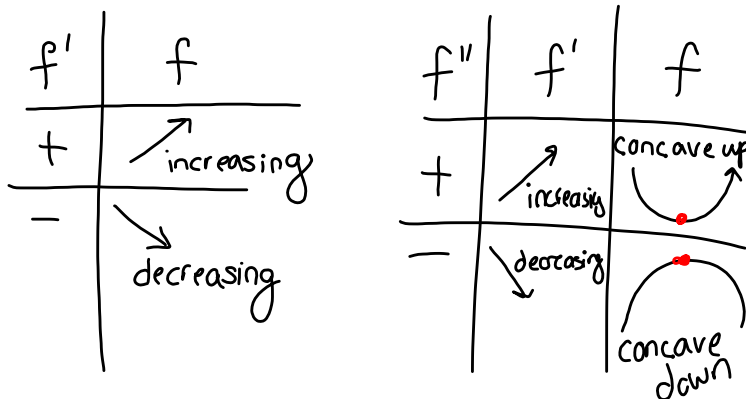 f' f
+ increasing
- decreasing
f" f' f
+ increasiy concave up
- decreasing
concave
down